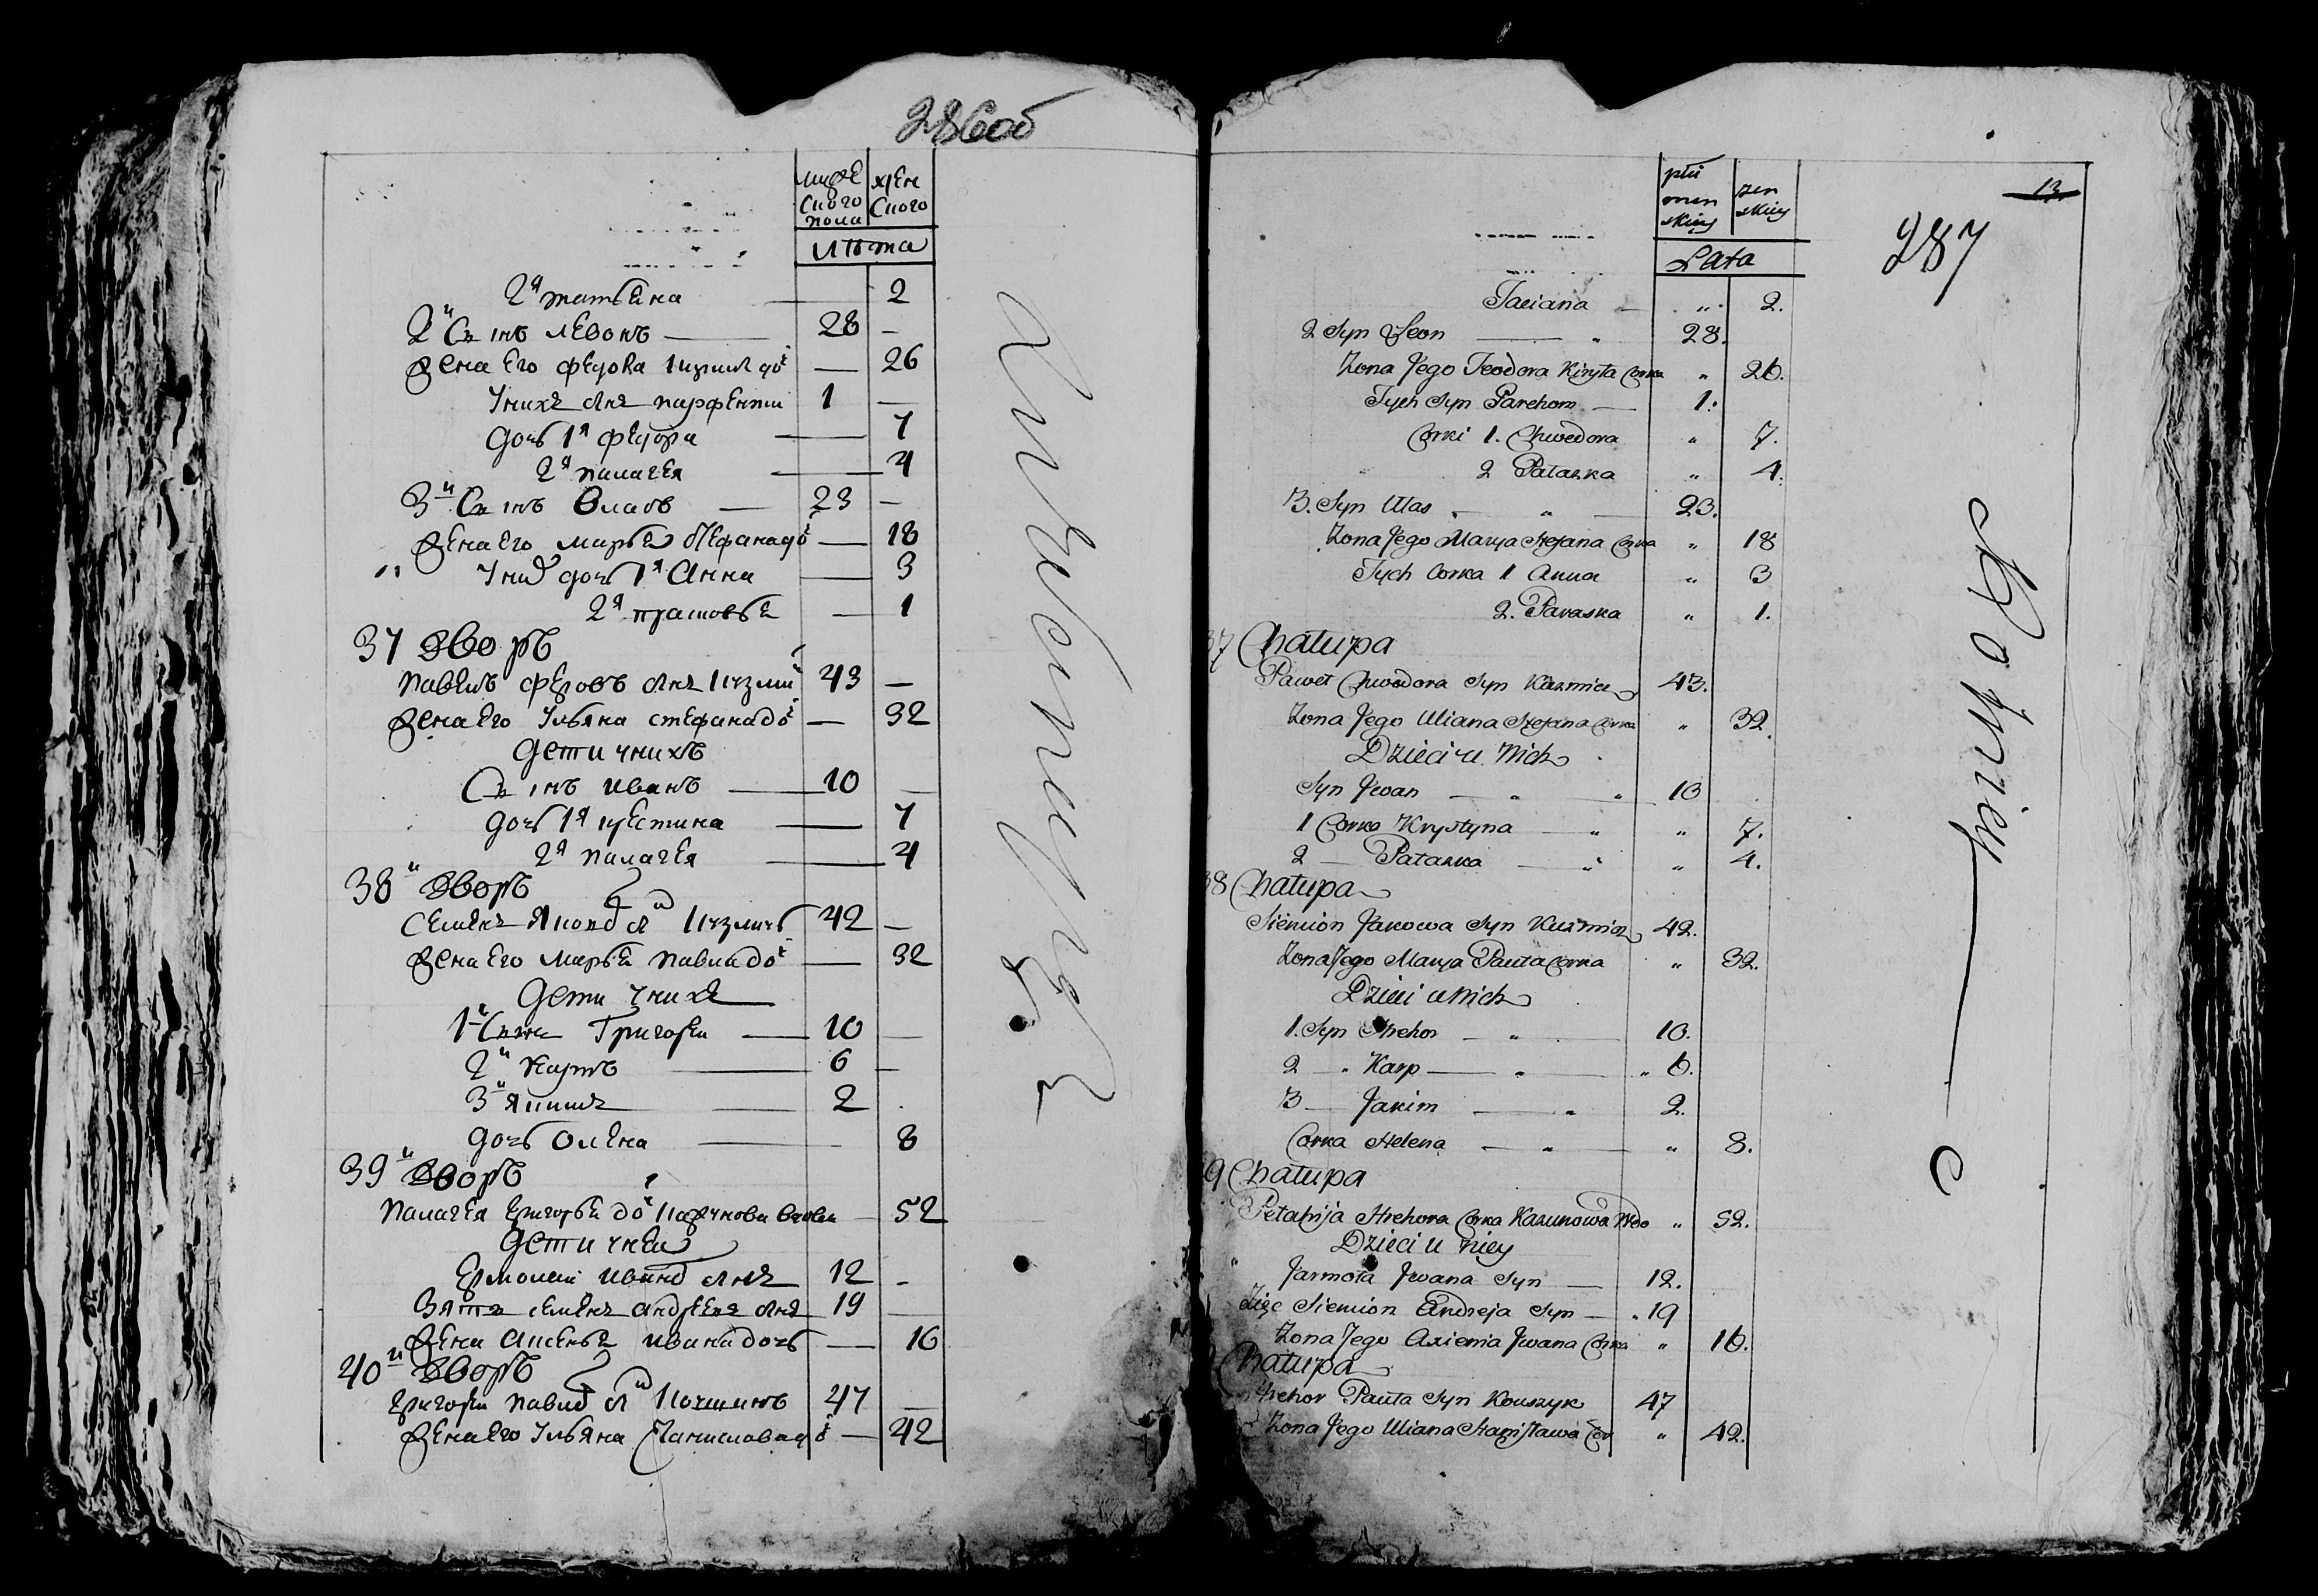 286об
мужескаго пола
женскаго
лѣта
2я татьяна 2
2й Сынъ левонъ 28 —
жена его федора кирила до: — 26
у нихъ сынъ парфенти 1 —
дочь 1я федора 7
2я палагея 4
3й Сынъ Власъ 23 —
жена его марья стефана до: — 18
у них дочь 1я Анна 3
2я прасковья 1
37 Дворъ
павелъ федоровъ сынъ кузмич 43 —
жена его ульяна стефана до: — 32
дети у нихъ
Сынъ иванъ 10 —
дочь 1я кристина 7
2я палагея 4
38й Дворъ
семенъ яковлев сынъ кузмичъ 42 —
жена его марья павла до: — 32
дети у нихъ
1й Сынъ Григореи 10 —
2й карпъ 6 —
3й якимъ 2
дочь олена 8
39й Дворъ
палагея григорья до: вдова — 52
дети у неи
ермолаи ивана сынъ 12 —
Зять семенъ андреевъ сынъ 19 —
жена аксенья ивана дочь — 16
40й Дворъ
григореи павла сынъ 47 —
жена его ульяна станиславова до: — 42
13
287
płci męnskiey
zenskiey
Lata
Taciana „ 2.
2 Syn Leon „ 28.
Zona Jego Teodora Kiryła Corka „ 26.
Tych Syn Parchom 1.
Corki 1. Chwedora „ 7.
2 Pałazka „ 4.
3. Syn Ułas „ 23.
Zona Jego Marya Stefana Corka „ 18
Tych Corka 1 Anna „ 3
2. Paraska „ 1.
37 Chałupa
Paweł Chwedora Syn Kuzmicz 43.
Zona Jego Uliana Stefana Corka „ 32.
Dzieci u Nich
Syn Jwan „ „ 10
1 Corka Krystyna „ „ 7.
2 — Pałazka „ „ 4.
38 Chałupa
Siemion Jakowa Syn Kuzmicz 42.
Zona Jego Marya Pauła Corka „ 32.
Dzieci u Nich
1. Syn Hrehor „ 10.
2 — „ Karp „ „ 6.
3 — Jakim „ 2.
Corka Helena „ „ 8.
9 Chałupa
Petahija Hrehora Corka Wdo „ 52.
Dzieci u niey
Jarmoła Jwana Syn 12.
Zięc Siemion Andreja Syn „ 19
Zona Jego Axienia Jwana Corka „ 16.
Chałupa
Hrehor Pauła Syn 47
Zona Jego Uliana Stanisława Cor „ 42.